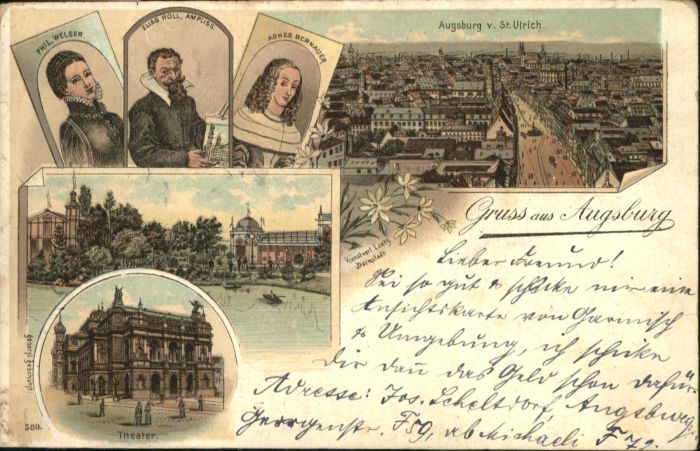 PHIL. WELSER.
ELIAS HOLL, AMPLISS.
AGNES BERNAUER
Augsburg v. St. Ulrich.
Gruss aus Augsburg
Kunstverl. Lautz
Darmstadt.
Lieber Freund!
Sei so gut & schicke mir eine
Ansichtskarte von Garmisch
& Umgebung, ich schicke
Dir dan das Geld schon dafür.
Adresse: Jos. Scheltdorf, Augsburg,
Georgenstr. F 59, ab Michaeli F 72.
Theater.
580.